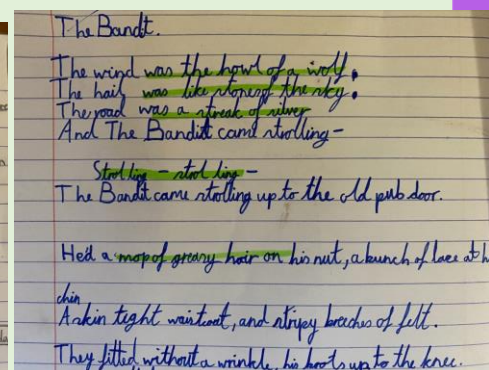 The Bandt.
The wind was the howl of a wolf.
The hail was like stones of the sky.
The road was a streak of silver
And The Bandit came strolling-
Strolling - strol ling -
The Bandit came strolling up to the old pub door.
He'd a mop of greasy hair on his nut, a bunch of lace at h
chin
A skin tight waistcoat, and stripy breeches of felt.
They fitted without a wrinkle, his boots up to the knee.